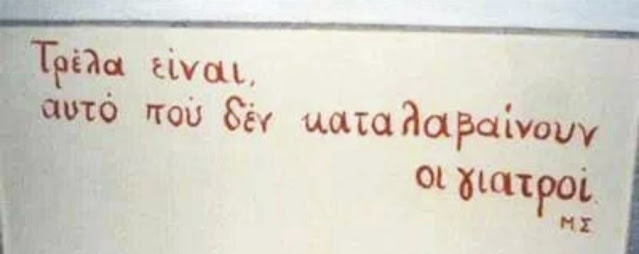 Τρέλα είναι,
αυτό πού δέν καταλαβαίνουν
οι γιατροί.
ΜΣ